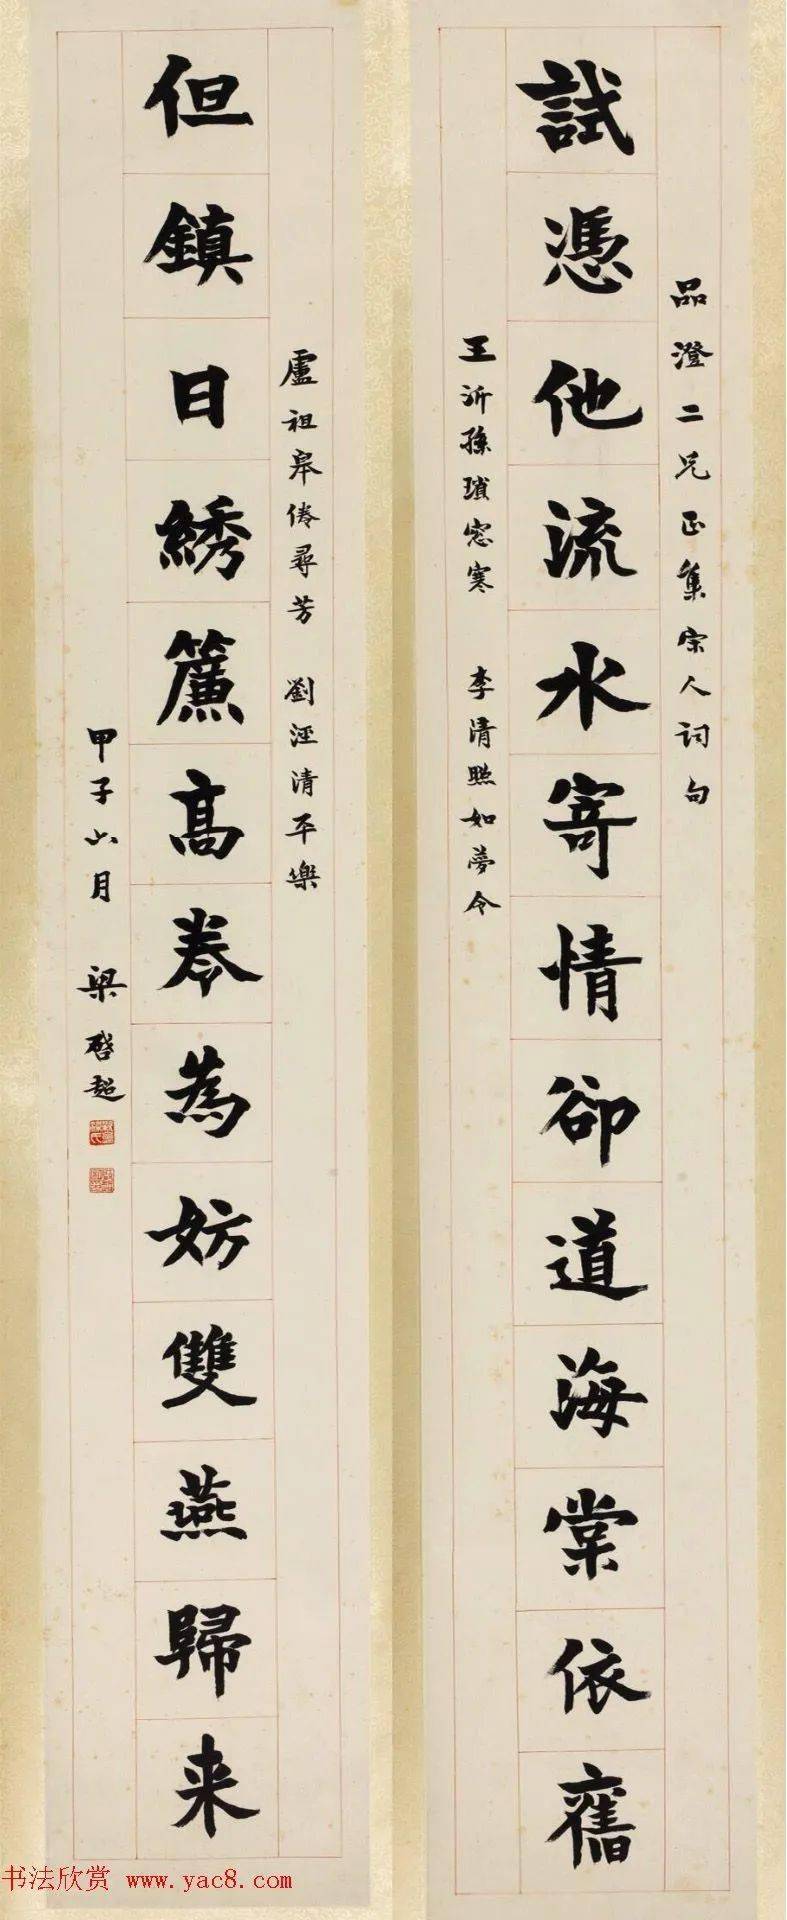 品澄二兄正集宋人詞句
試憑他流水寄情卻道海棠依舊
王沂孫瑣窓寒　李清照如夢令
盧祖皋倦尋芳　劉涇清平樂
但鎮日綉簾高卷為妨雙燕歸来
甲子六月　梁啓超
书法欣赏 www.yac8.com